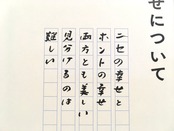 せについて
ニセの幸せと
ホントの幸せ
両方とも美しい
見分けるのは
難しい